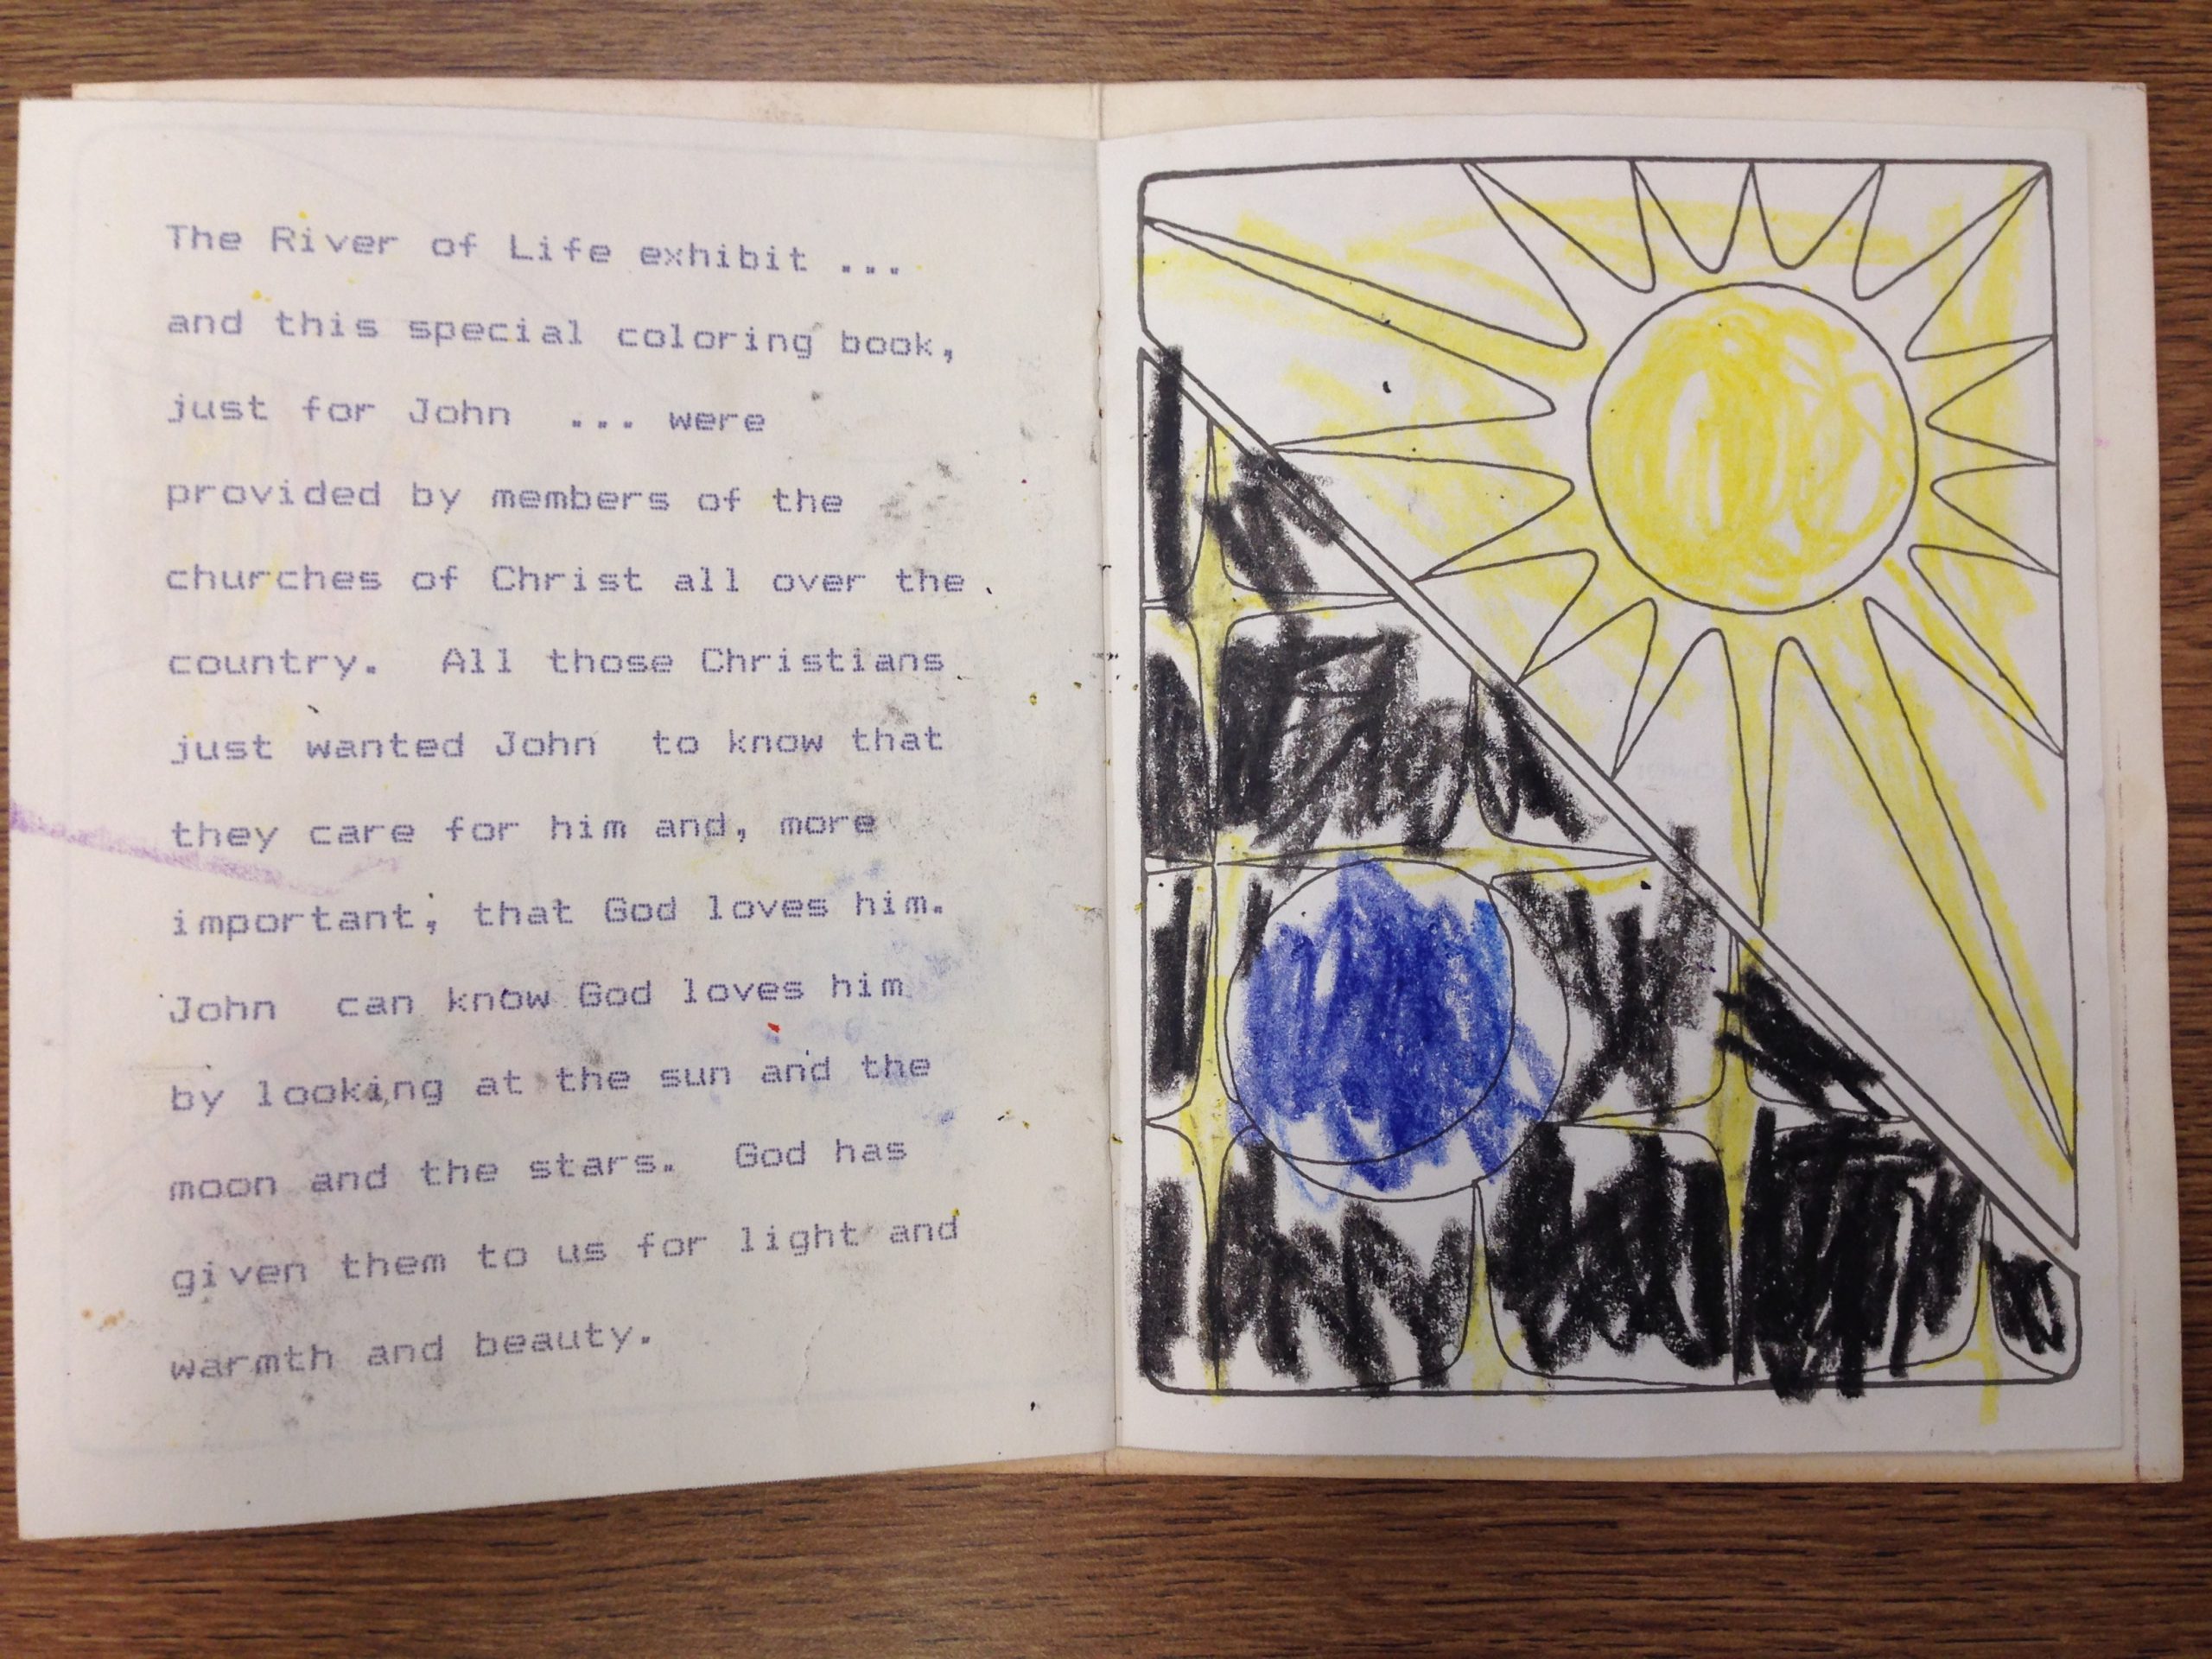 The River of Life exhibit ...
and this special coloring book,
just for John ... were
provided by members of the
churches of Christ all over the
country. All those Christians
just wanted John to know that
they care for him and, more
important, that God loves him.
John can know God loves him
by looking at the sun and the
moon and the stars. God has
given them to us for light and
warmth and beauty.